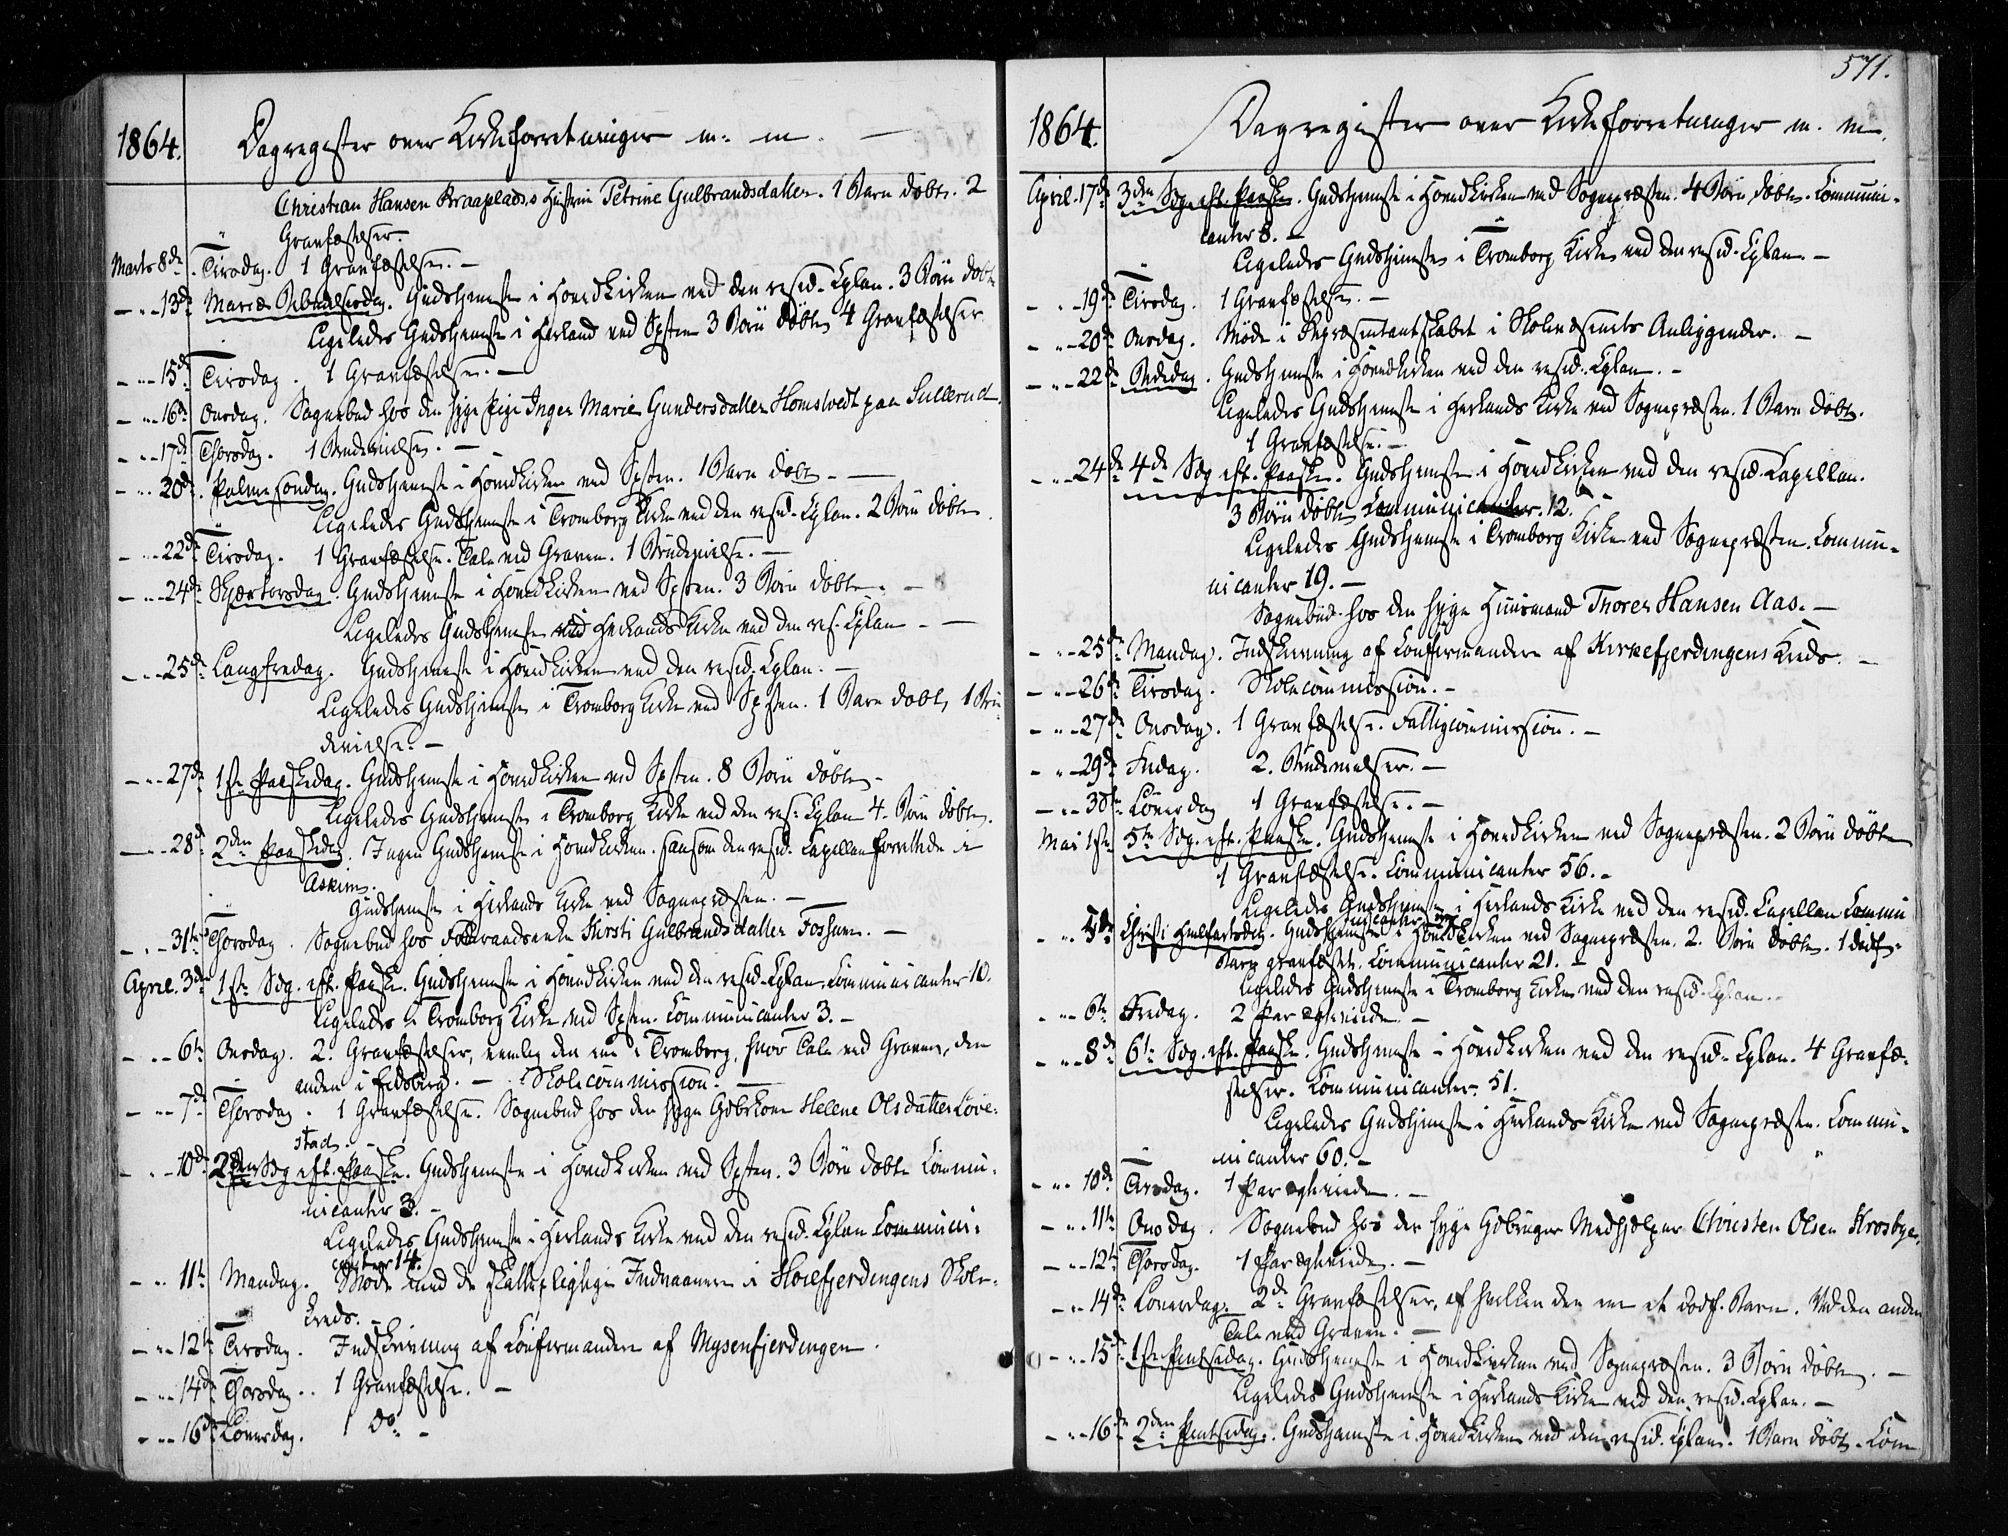 1864.
Dagregister over Kirkeforretninger m. m.
Christian Hansen Kraaplads's Hustru Petrine Gulbrandsdatter. 1 Barn døbt. 2
Gravfæstelser.
Marts 8de. Tirsdag. 1 Gravfæstelse. —
— „ — 13de Mariæ Bebudelsesdag. Gudstjeneste i Hovedkirken ved den resid. Cplan. 3 Børn døbte
Ligeledes Gudstjeneste i Herland ved Spsten 3 Børn døbte 4 Gravfæstelser
— „ — 15de Tirsdag. 1 Gravfæstelse. —
— „ — 16de Onsdag. Sognebud hos den syge Pige Inger Marie Gundersdatter Homstvedt paa Sullerud.
— „ — 17de Thorsdag. 1 Brudevielse. —
— „ — 20de. Palmesøndag. Gudstjeneste i Hovedkirken ved Spsten. 1 Barn døbt. —
Ligeledes Gudstjeneste i Tromborg Kirke ved den resid. Cplan. 2 Børn døbte.
— „ — 22de Tirsdag. 1 Gravfæstelse. Tale ved Graven. 1 Brudevielse. —
— „ — 24de Skjærtorsdag. Gudstjeneste i Hovedkirken ved Spsten. 3 Børn døbte. —
Ligeledes Gudstjeneste ved Herlands Kirke ved den res. Cplan —
— „ — 25de Langfredag. Gudstjeneste i Hovedkirken ved den resid. Cplan. —
Ligeledes Gudstjeneste i Tromborg Kirke ved Spsten. 1 Barn døbt, 1 Bru-
devielse. —
— „ — 27de 1ste Paaskedag. Gudstjeneste i Hovedkirken ved Spsten. 8 Børn døbte —
Ligeledes Gudstjeneste i Tromborg Kirke ved den res. Cplan 4 Børn døbte.
— „ — 28de 2den Paaskedag. Ingen Gudstjeneste i Hovedkirken, saasom den resid. Capellan forrettede i
Askim.
Gudstjeneste i Herlands Kirke ved Sognepræsten. —
— „ — 31te Thorsdag. Sognebud hos Føderaadsenke Kirsti Gulbrandsdatter Fossum. —
April. 3de 1ste Sdg. eft. Paaske. Gudstjeneste i Hovedkirken ved den resid. Cplan. Communicanter 10.
Ligeledes i Tromborg Kirke ved Spsten. Communicanter 3. —
— „ — 6te Onsdag. 2. Gravfæstelser, nemlig den ene i Tromborg, hvor Tale ved Graven, den
anden i Eidsberg. — Skolecommission. —
— „ — 7de Thorsdag. 1 Gravfæstelse. Sognebud hos den syge Gdbrkone Helene Olsdatter Løve-
stad. —
— „ — 10de 2den Sdg eft. Paaske. Gudstjeneste i Hovedkirken ved Spsten. 3 Børn døbte Commu-
nicanter 3. —
Ligeledes Gudstjeneste i Herlands Kirke ved den resid. Cplan Communi-
canter 14.
— „ — 11te Mandag. Møde med de skattepligtige Indvaanere i Hoiefjerdingens Skole-
kreds.
— „ — 12te Tirsdag. Indskrivning af Confirmander af Mysenfjerdingen.
— „ — 14de Thorsdag. 1 Gravfæstelse. —
— „ — 16de Løverdag. 1 Do. —
571.
1864.
Dagregister over Kirkeforretninger m. m.
April. 17de 3die Sdg. eft. Paaske. Gudstjeneste i Hovedkirken ved Sognepræsten. 4 Børn døbte. Communi-
canter 8. —
Ligeledes Gudstjeneste i Tromborg Kirke ved den resid. Cplan. —
— „ — 19de Tirsdag. 1 Gravfæstelse. —
— „ — 20de Onsdag. Møde i Repræsentantskabet i Skolevæsenets Anliggender. —
— „ — 22de Bededag. Gudstjeneste i Hovedkirken ved den resid. Cplan. —
Ligeledes Gudstjeneste i Herlands Kirke ved Sognepræsten. 1 Barn døbt.
1 Gravfæstelse. —
— „ — 24de 4de Sdg eft. Paaske. Gudstjeneste i Hovedkirken ved den resid. Capellan.
3 Børn døbte Communicanter. 12.
Ligeledes Gudstjeneste i Tromborg Kirke ved Sognepræsten. Commu-
nicanter 19. —
Sognebud hos den syge Huusmand Thorer Hansen Aas. —
— „ — 25de Mandag. Indskrivning af Confirmandere af Kirkefjerdingens Kreds. —
— „ — 26de Tirsdag. Skolecommission. —
— „ — 27de Onsdag. 1 Gravfæstelse. Fattigcommission. —
— „ — 29de Fredag. 2. Brudevielser. —
— „ — 30te Løverdag 1 Gravfæstelse. —
Mai 1ste 5te Sdg. eft. Paaske. Gudstjeneste i Hovedkirken ved Sognepræsten. 2 Børn døbte
1 Gravfæstelse. Communicanter 56. —
Ligeledes Gudstjeneste i Herlands Kirke ved den resid. Capellan Commu
nicanter
— „ 5te Christi Himmelfartsdag. Gudstjeneste i Hovedkirken ved Sognepræsten. 2. Børn døbte. 1 dødf.
Barn gravfæstet. Communicanter 21. —
Ligeledes Gudstjeneste i Tromborg Kirke ved den resid. Cplan. —
— „ — 6te Fredag. 2 Par egteviede. —
— „ — 8de 6te Sdg. eft. Paaske. Gudstjeneste i Hovedkirken ved den resid. Cplan. 4 Gravfæ-
stelser. Communicanter. 51.
Ligeledes Gudstjeneste i Herlands Kirke ved Sognepræsten. Commu-
nicanter 60. —
— „ — 10de Tirsdag. 1 Par egteviede. —
— „ — 11te Onsdag. Sognebud hos den syge Gdbruger Medhjælper Christen Olsen Krosbye.
— „ — 12te Thorsdag. 1 Par egteviede. —
— „ — 14de Løverdag. 2de Gravfæstelser, af hvilken den ene et dødf. Barn. Ved den anden
Tale ved Graven. —
— „ — 15de 1ste Pintsedag. Gudstjeneste i Hovedkirken ved Sognepræsten. 3 Børn døbte. —
Ligeledes Gudstjeneste i Herlands Kirke ved den resid. Cplan. —
— „ — 16de 2den Pintsedag. Gudstjeneste i Hovedkirken ved den resid. Cplan. 1 Barn døbt. Com